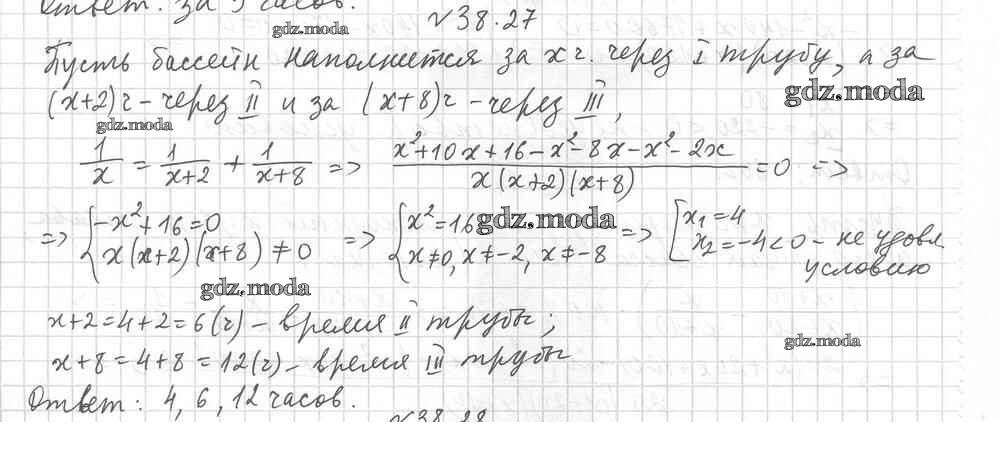 Ответ: за 9 часов.
№38.27
gdz.moda
Пусть бассейн наполнится за x ч. через I трубу, а за
gdz.moda
(x+2)ч - через II и за (x+8)ч - через III,
gdz.moda
1/x = 1/(x+2) + 1/(x+8) => (x²+10x+16-x²-8x-x²-2x)/(x(x+2)(x+8)) = 0 =>
=> { -x²+16=0 ; x(x+2)(x+8)≠0 => { x²=16 ; x≠0, x≠-2, x≠-8 => [ x₁=4 ; x₂=-4<0 - не удовл.
условию
gdz.moda
gdz.moda
x+2=4+2=6(ч) - время II трубы;
gdz.moda
x+8=4+8=12(ч) - время III трубы
Ответ: 4, 6, 12 часов.
№38.28